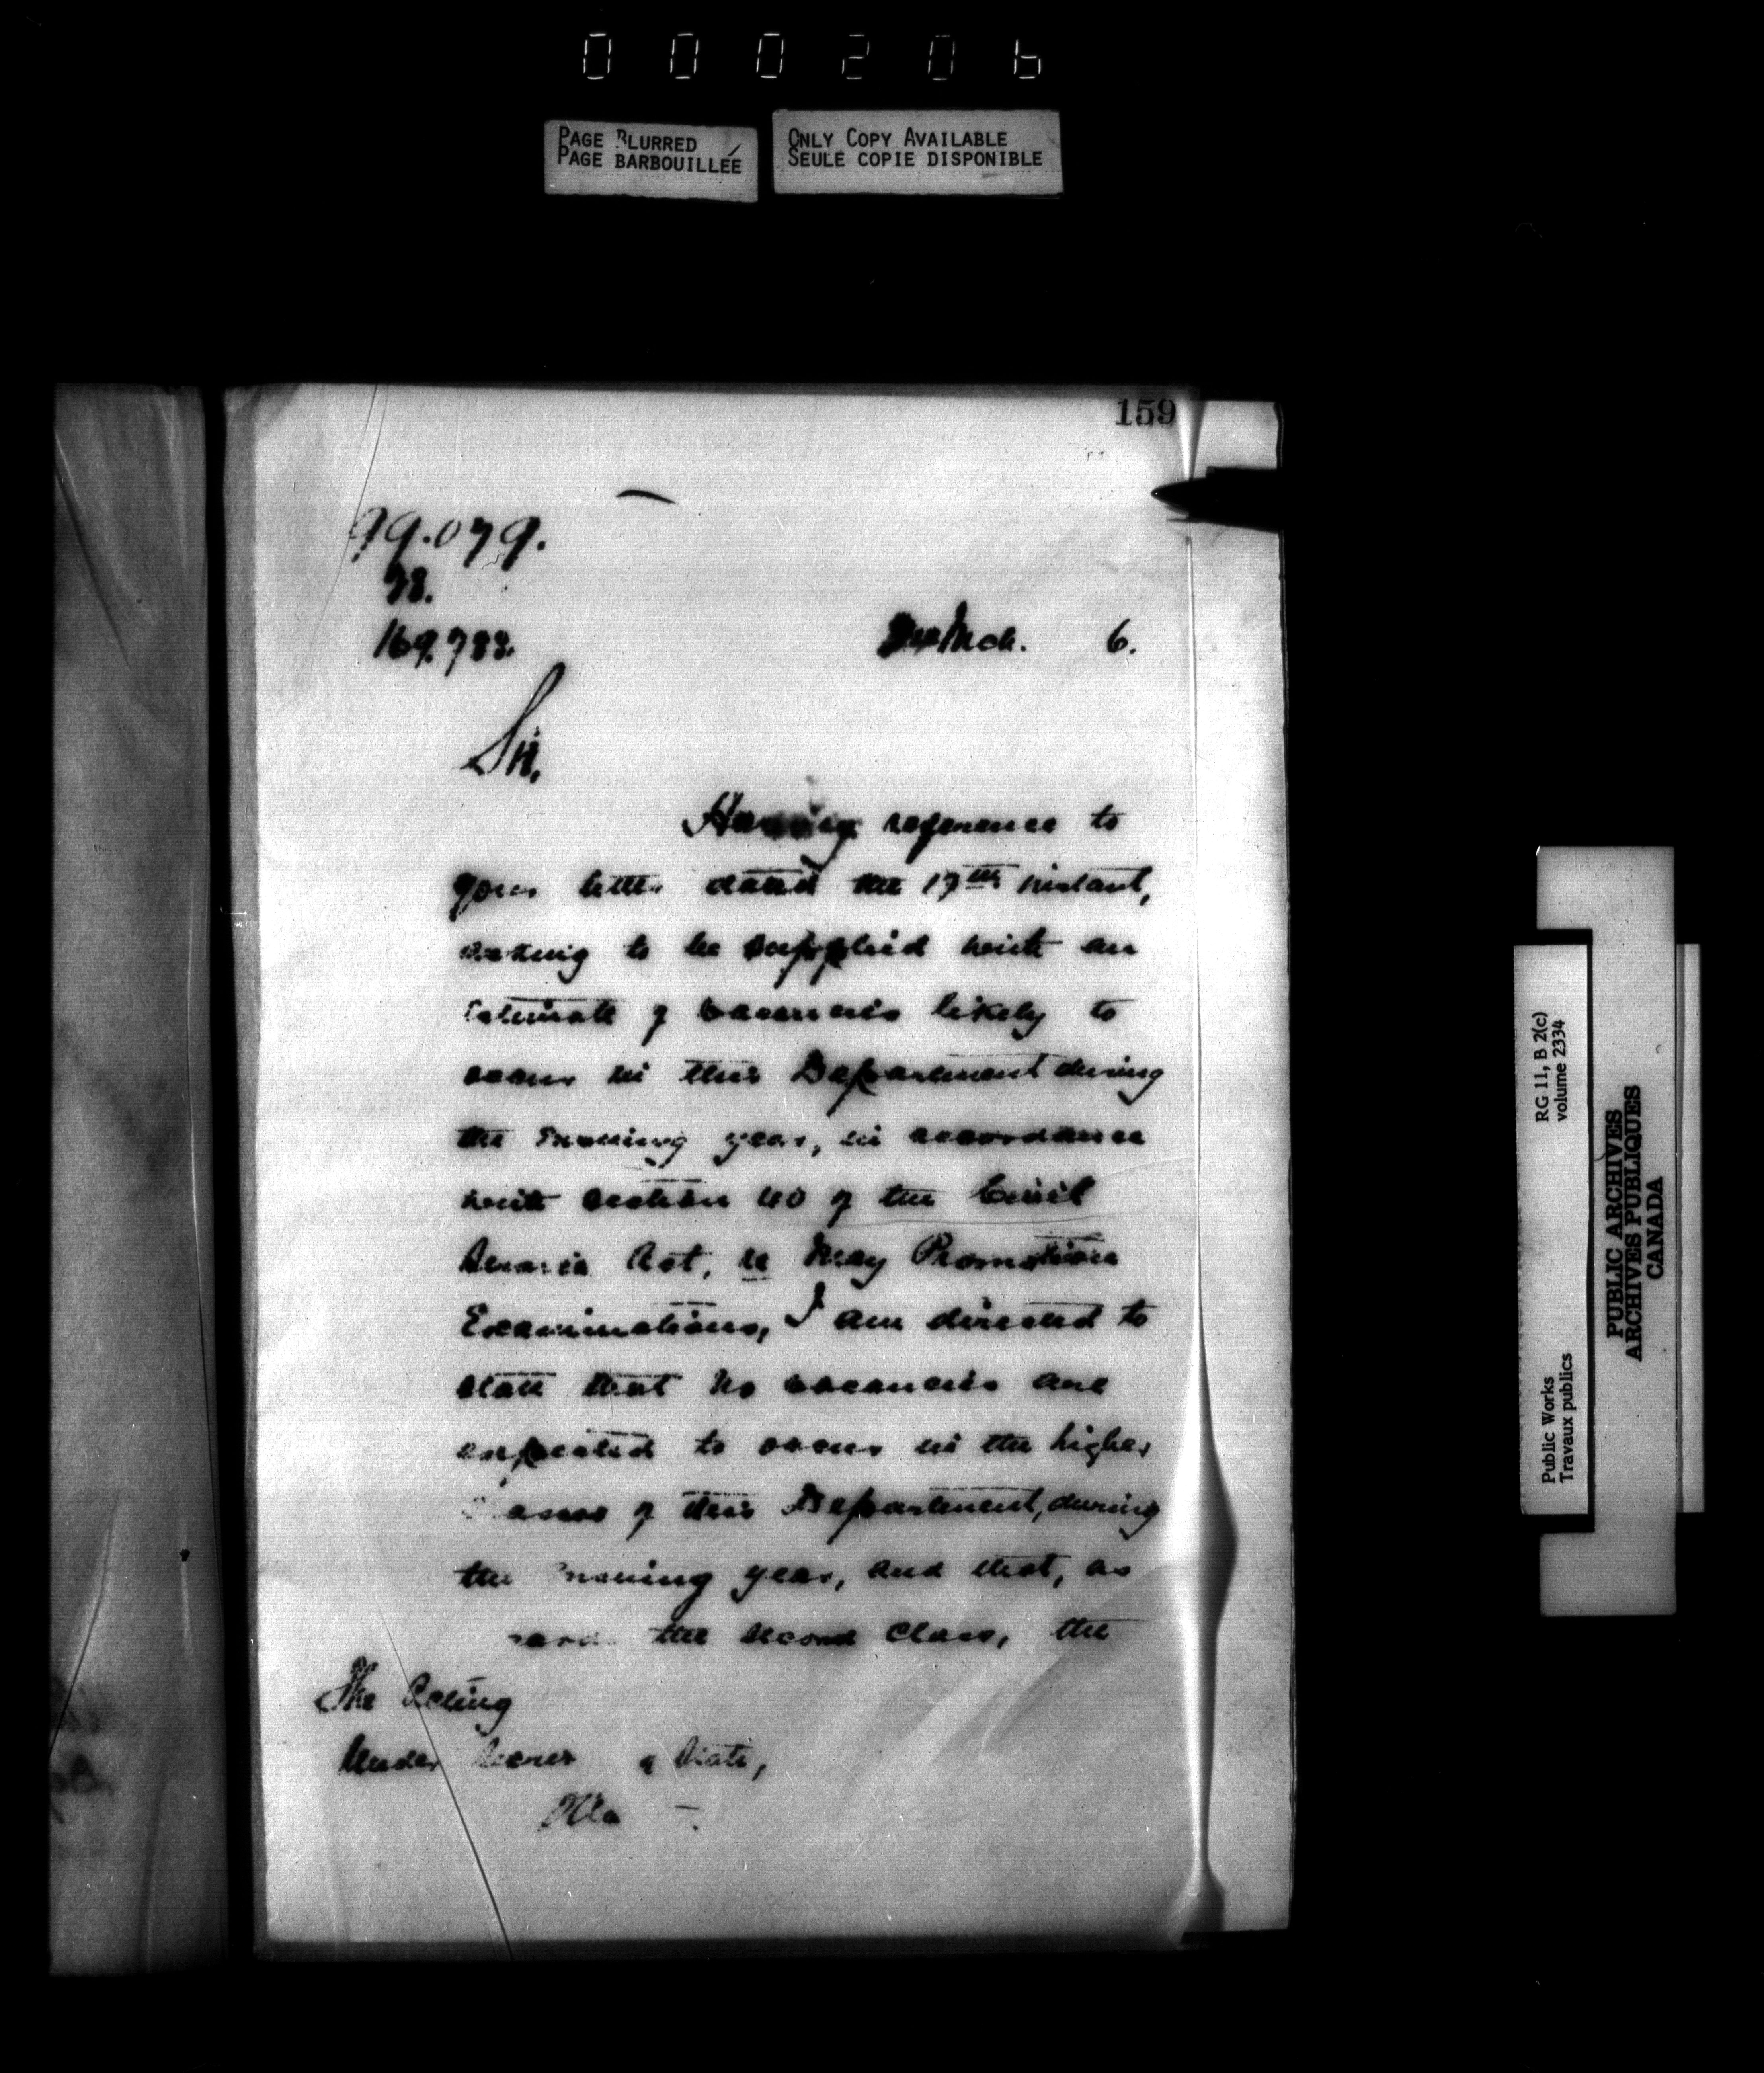 000206
PAGE BLURRED
PAGE BARBOUILLÉE
ONLY COPY AVAILABLE
SEULE COPIE DISPONIBLE
159
99.079.
78.
169.788.
Mch. 6.
Sir,
Having reference to
your letter dated the 17th instant,
asking to be supplied with an
Estimate of vacancies likely to
occur in this Department during
the ensuing year, in accordance
with Section 40 of the Civil
Service Act, re May Promotion
Examinations, I am directed to
state that no vacancies are
expected to occur in the higher
of this Department, during
the ensuing year, and that, as
the second Class, the
The Acting
Under State,
RG 11, B 2(c)
volume 2334
Public Works
Travaux publics
PUBLIC ARCHIVES
ARCHIVES PUBLIQUES
CANADA